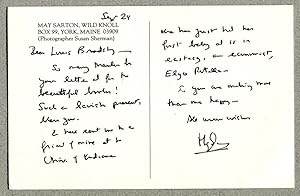 Sept 24
MAY SARTON, WILD KNOLL
BOX 99, YORK, MAINE 03909
(Photographer Susan Sherman)
Dear Louis
So many thanks for
your letter & for the
beautiful books!
Such a lavish present,
bless you.
I have sent one to a
friend of mine at the
Univ. of Indiana
who has just had her
first baby & is in
ecstasy, an economist,
So you are making more
than me happy—
All warm wishes